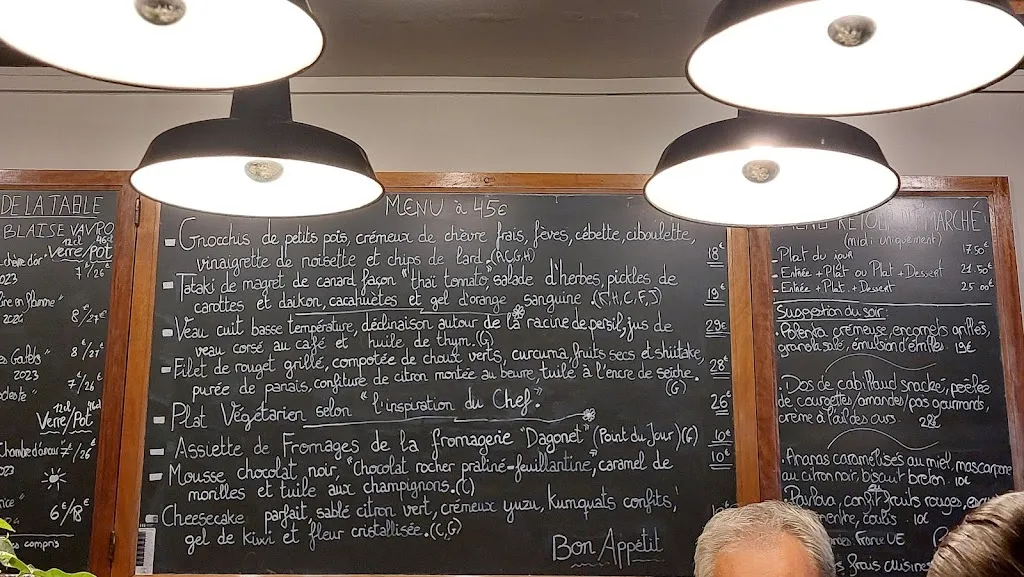 DE LA TABLE
BLAISE VAVRO
Verre/Pot
7/26€
2023
8€/27€
8€/27€
2023
7€/26€
Verre/Pot
7€/26€
2023
6€/18€
compris
MENU à 45€
Gnocchis de petits pois, crémeux de chèvre frais, fèves, cébette, ciboulette,
vinaigrette de noisette et chips de lard. (A,C,G,H) 18€
Tataki de magret de canard façon "thai tomato", salade d'herbes, pickles de
carottes et daikon, cacahuètes et gel d'orange sanguine (F,H,C,F,J) 19€
Veau cuit basse température, déclinaison autour de la racine de persil, jus de
veau corsé au café et huile de thym. (G) 29€
Filet de rouget grillé, compotée de choux verts, curcuma, fruits secs et shiitake,
purée de panais, confiture de citron montée au beurre, tuile à l'encre de seiche. (G) 28€
Plat Végétarien selon "l'inspiration du Chef." 26€
Assiette de Fromages de la fromagerie "Dagonet" (Pont du Jour) (G) 10€
Mousse chocolat noir, "Chocolat rocher praliné-feuillantine", caramel de 10€
morilles et tuile aux champignons. (C)
Cheesecake parfait, sablé citron vert, crémeux yuzu, Kumquats confits,
gel de kiwi et fleur cristallisée. (C,G)
Bon Appétit
MARCHÉ
(midi uniquement)
. Plat du jour 17.50€
. Entrée + Plat ou Plat + Dessert 21.50€
. Entrée + Plat + Dessert 25.00€
Suggestion du soir:
. Polenta crémeuse, encornets grillés,
granola salé, émulsion d'herbes. 19€
. Dos de cabillaud snacké, poêlée
de courgettes/amandes/pois gourmands,
crème à l'ail des ours. 28€
. Ananas caramélisés au miel, mascarpone
au citron noir, biscuit breton. 10€
Pavlova, confit fruits rouges,
coulis. 10€
France UE
frais cuisinés